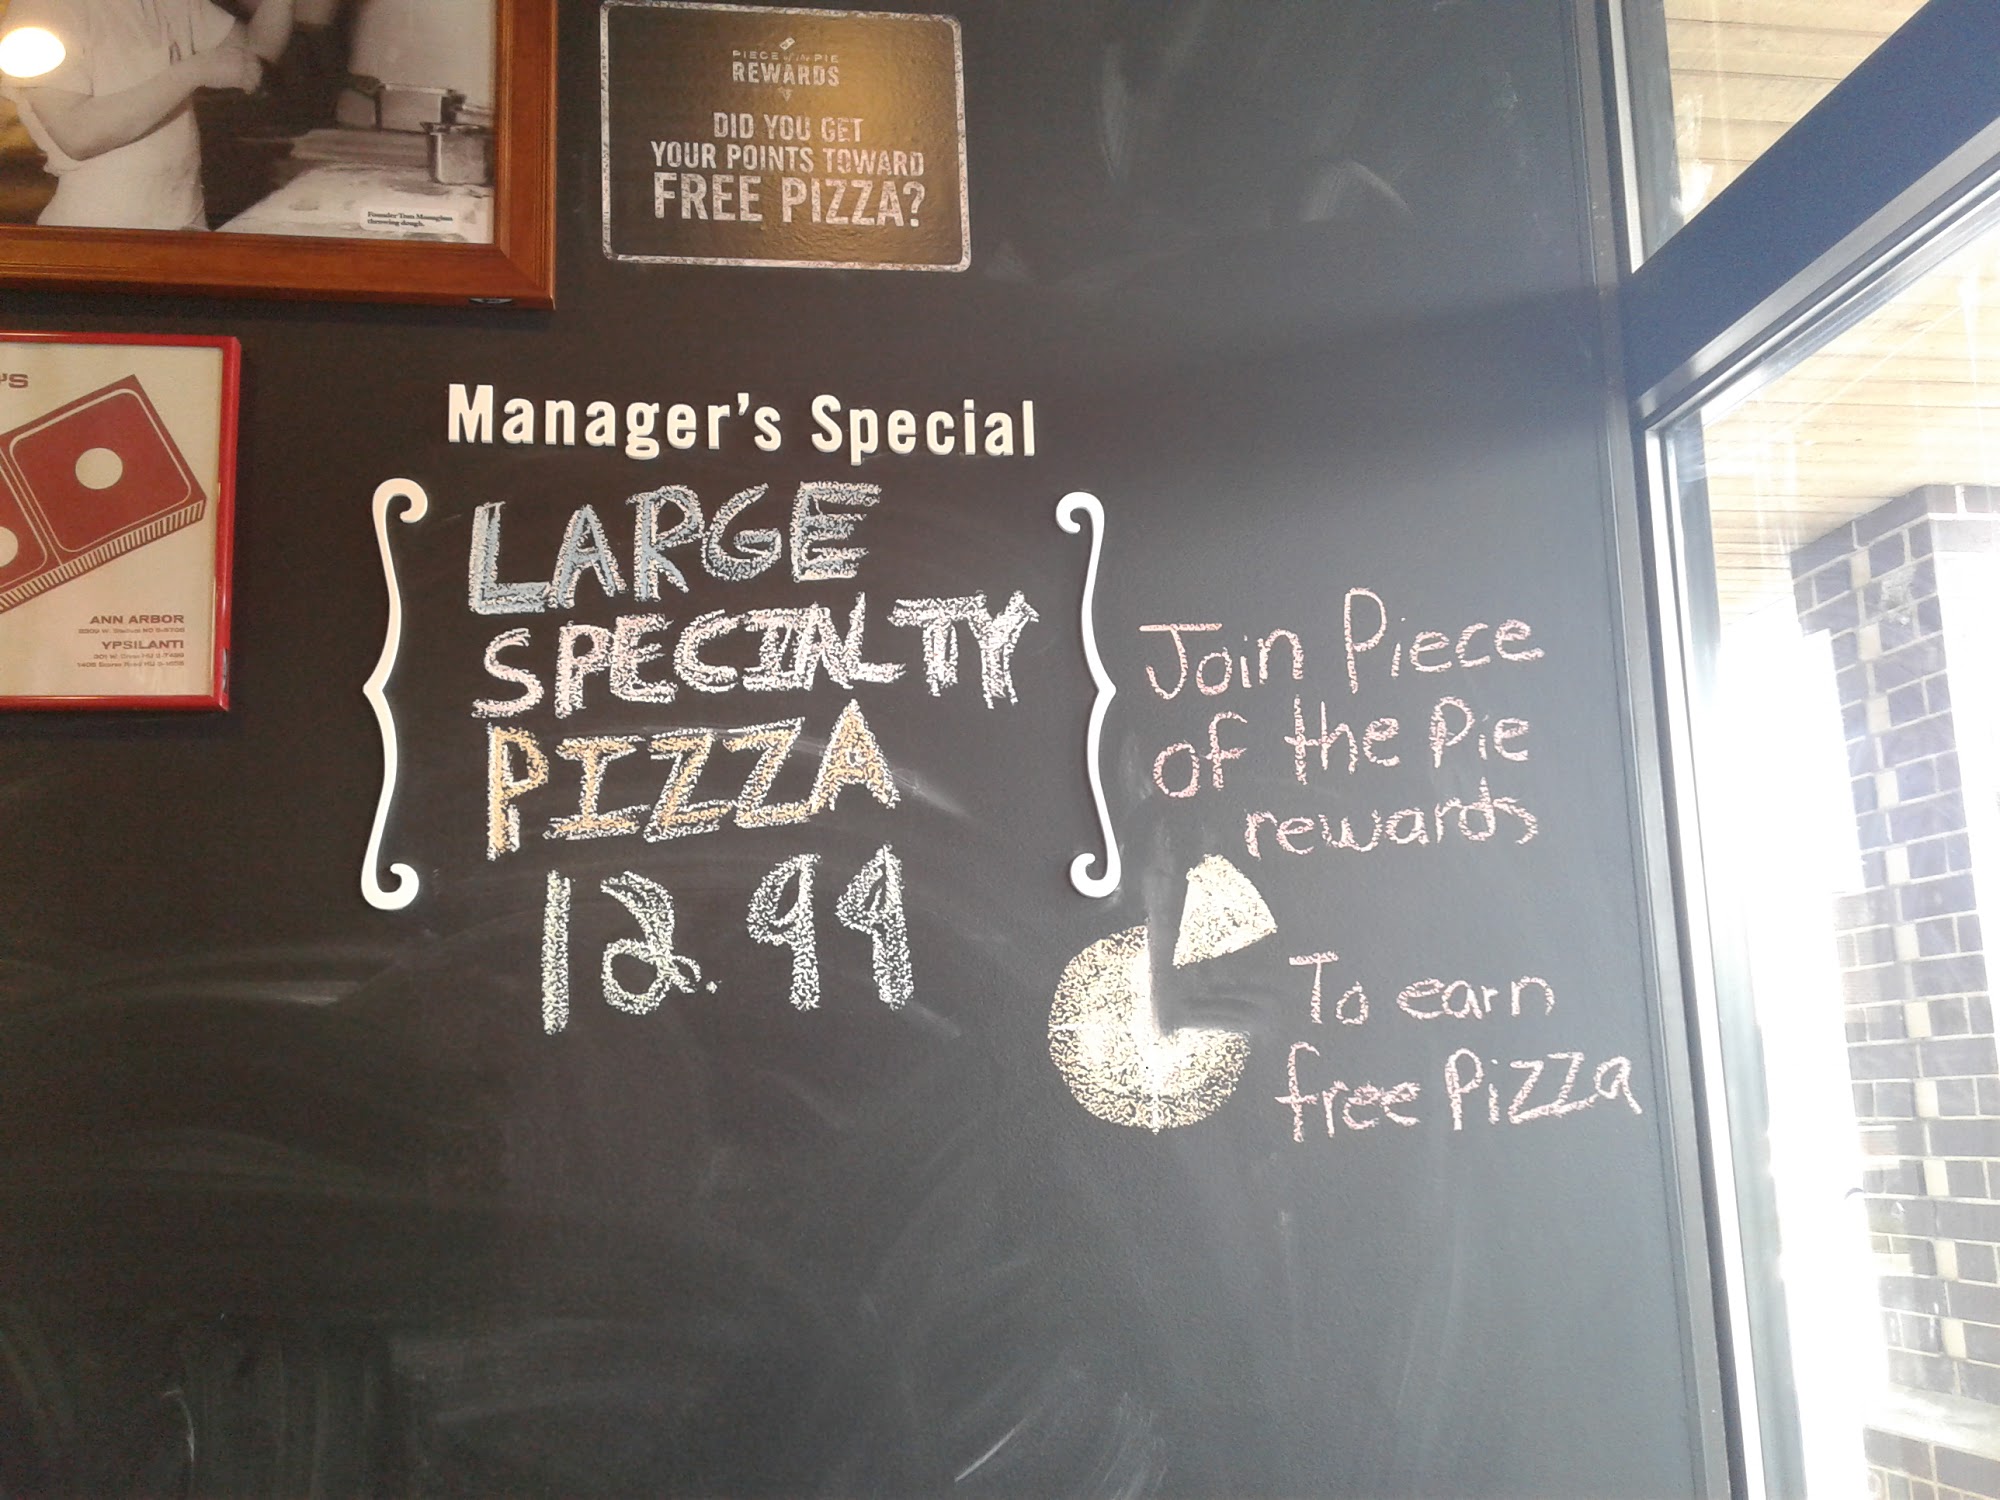 PIECE of the PIE
REWARDS
DID YOU GET
YOUR POINTS TOWARD
FREE PIZZA?
Founder Tom Monaghan
throwing dough.
'S
ANN ARBOR
YPSILANTI
Manager's Special
LARGE
SPECIALTY
PIZZA
12.99
Join Piece
of the Pie
rewards
To earn
free Pizza